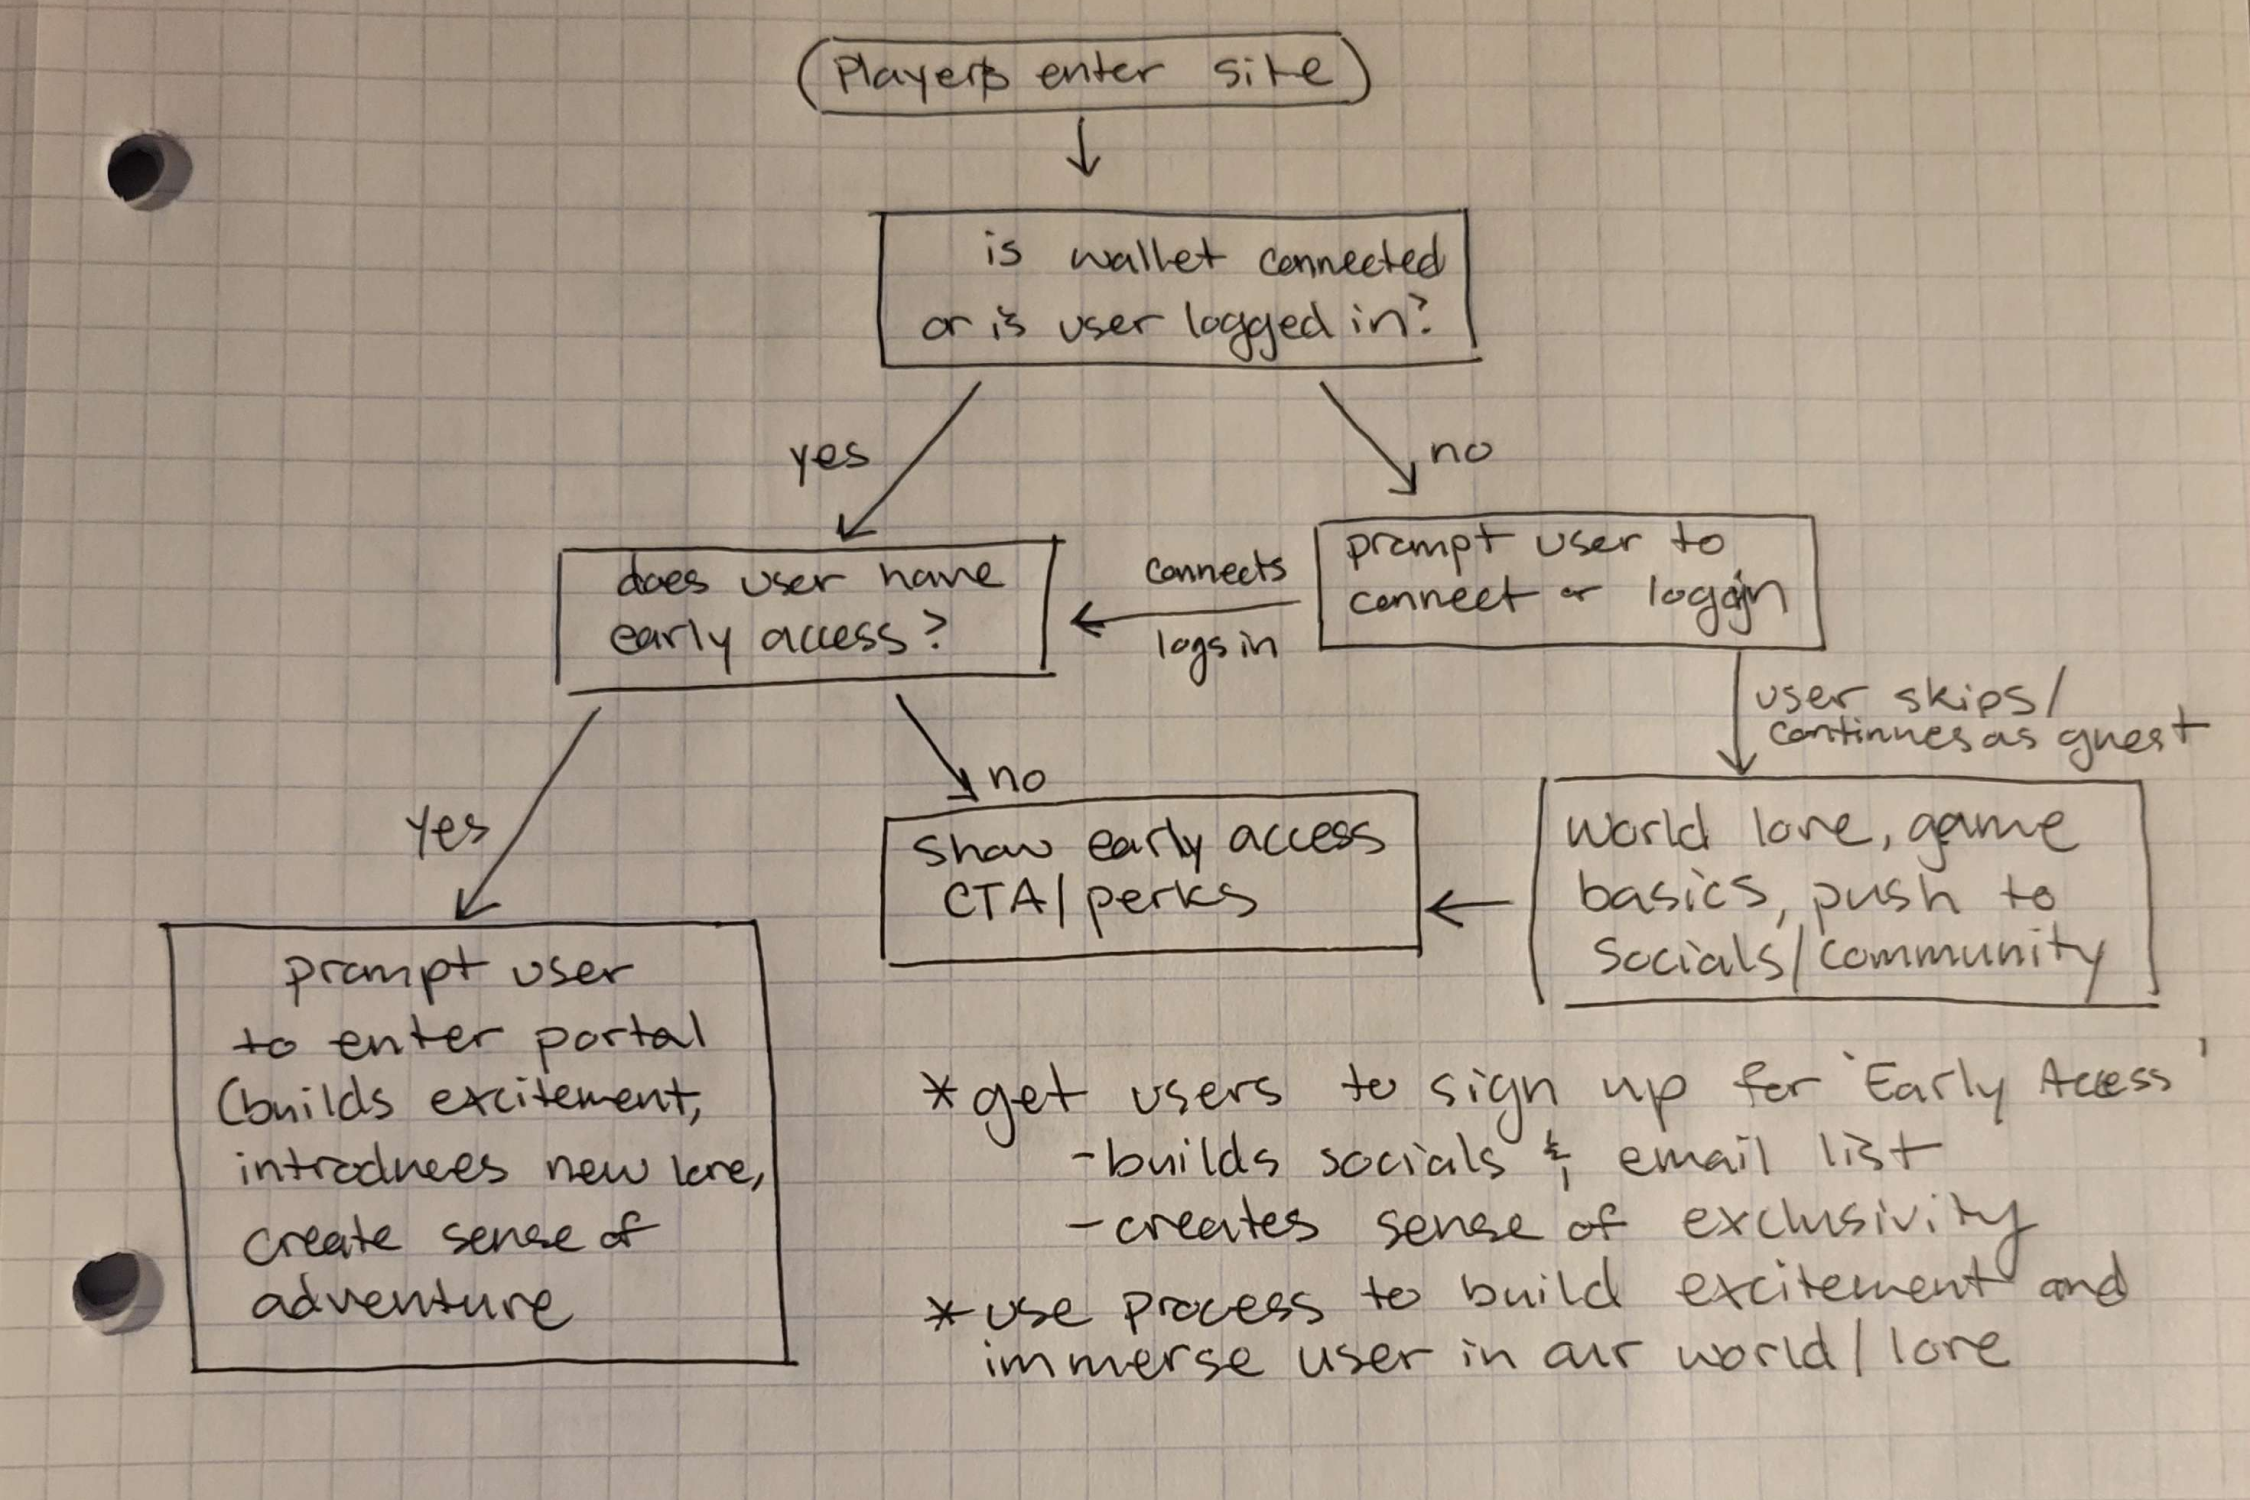 Players enter site
is wallet connected
or is user logged in?
yes
no
does user have
early access?
connects
logs in
prompt user to
connect or login
user skips/
continues as guest
Yes
no
show early access
CTA/perks
world lore, game
basics, push to
socials/community
prompt user
to enter portal
(builds excitement,
introduces new lore,
create sense of
adventure
*get users to sign up for 'Early Access'
-builds socials & email list
-creates sense of exclusivity
*use process to build excitement and
immerse user in our world/lore